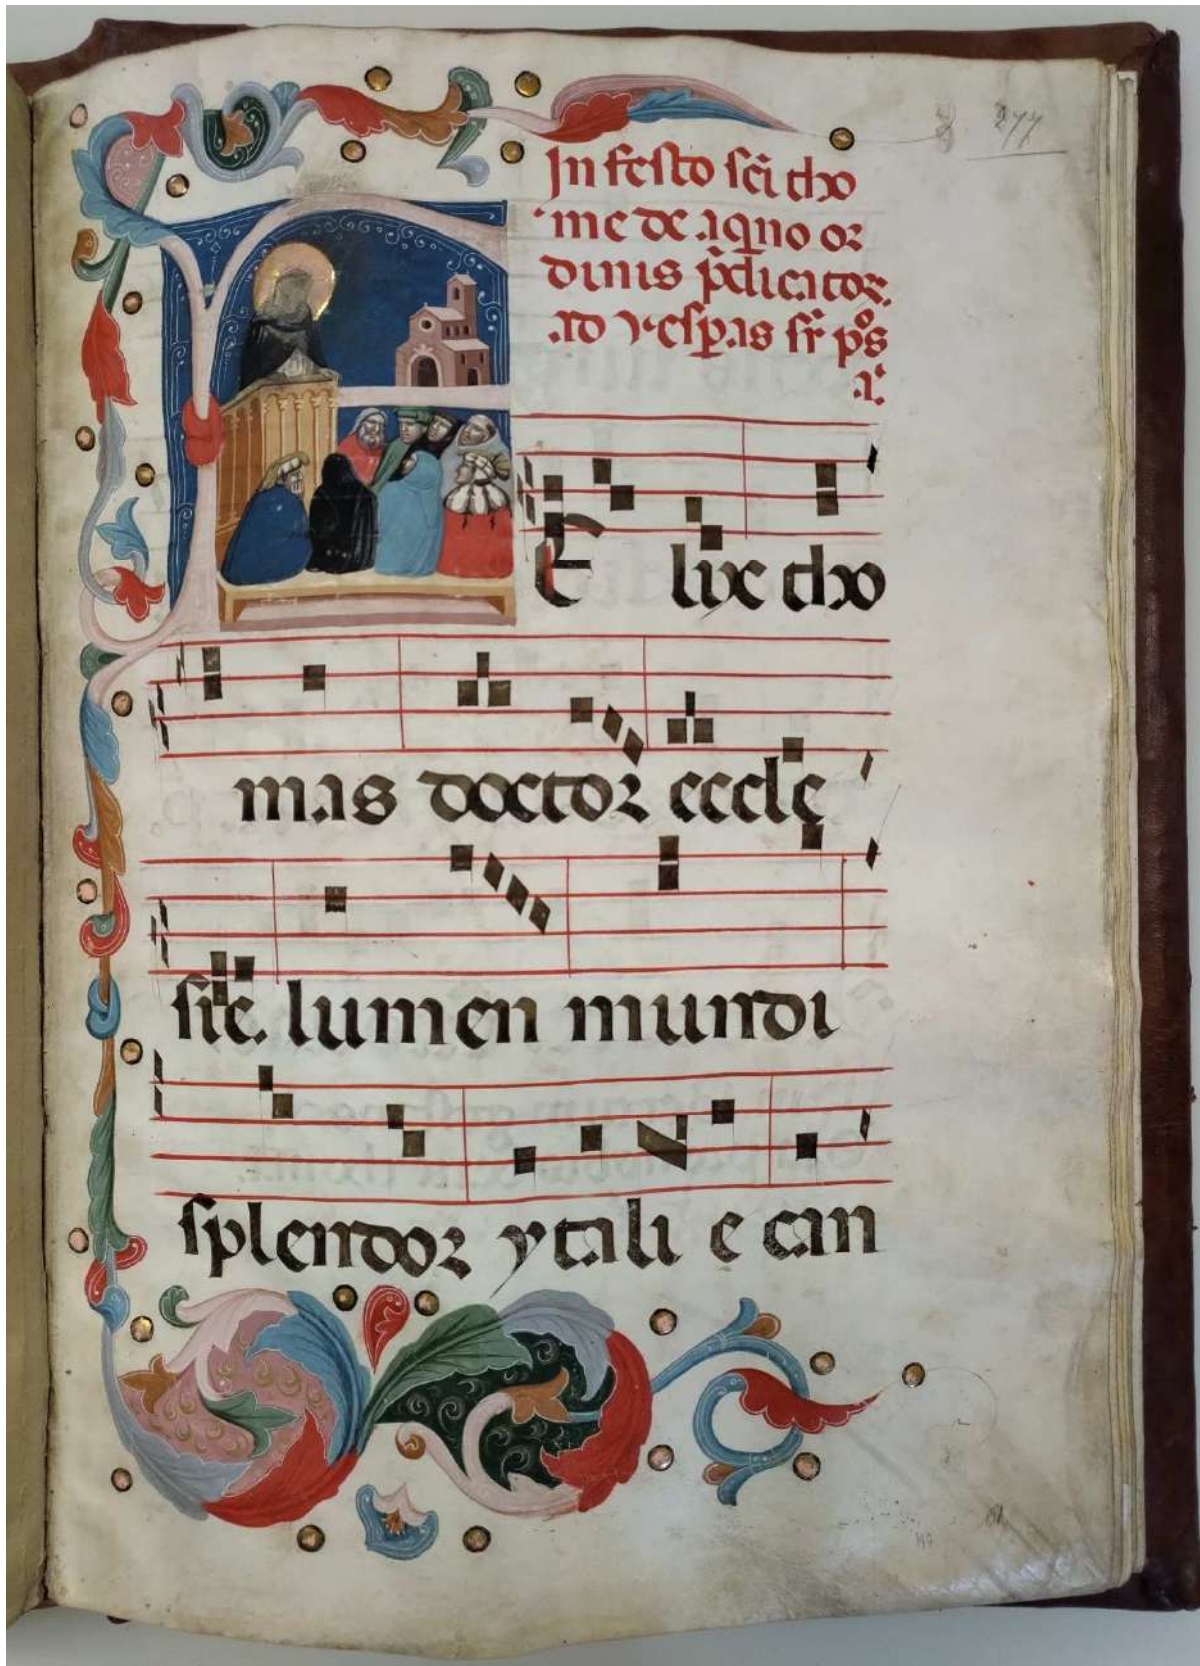 277
In festo scĩ tho
me de aquo or
dinis p̃dicator.
ad vesp̱as sr̃ pˢo
.a.
F E lix tho
mas doctor eccle
sie. lumen mundi
splendor ytali e can